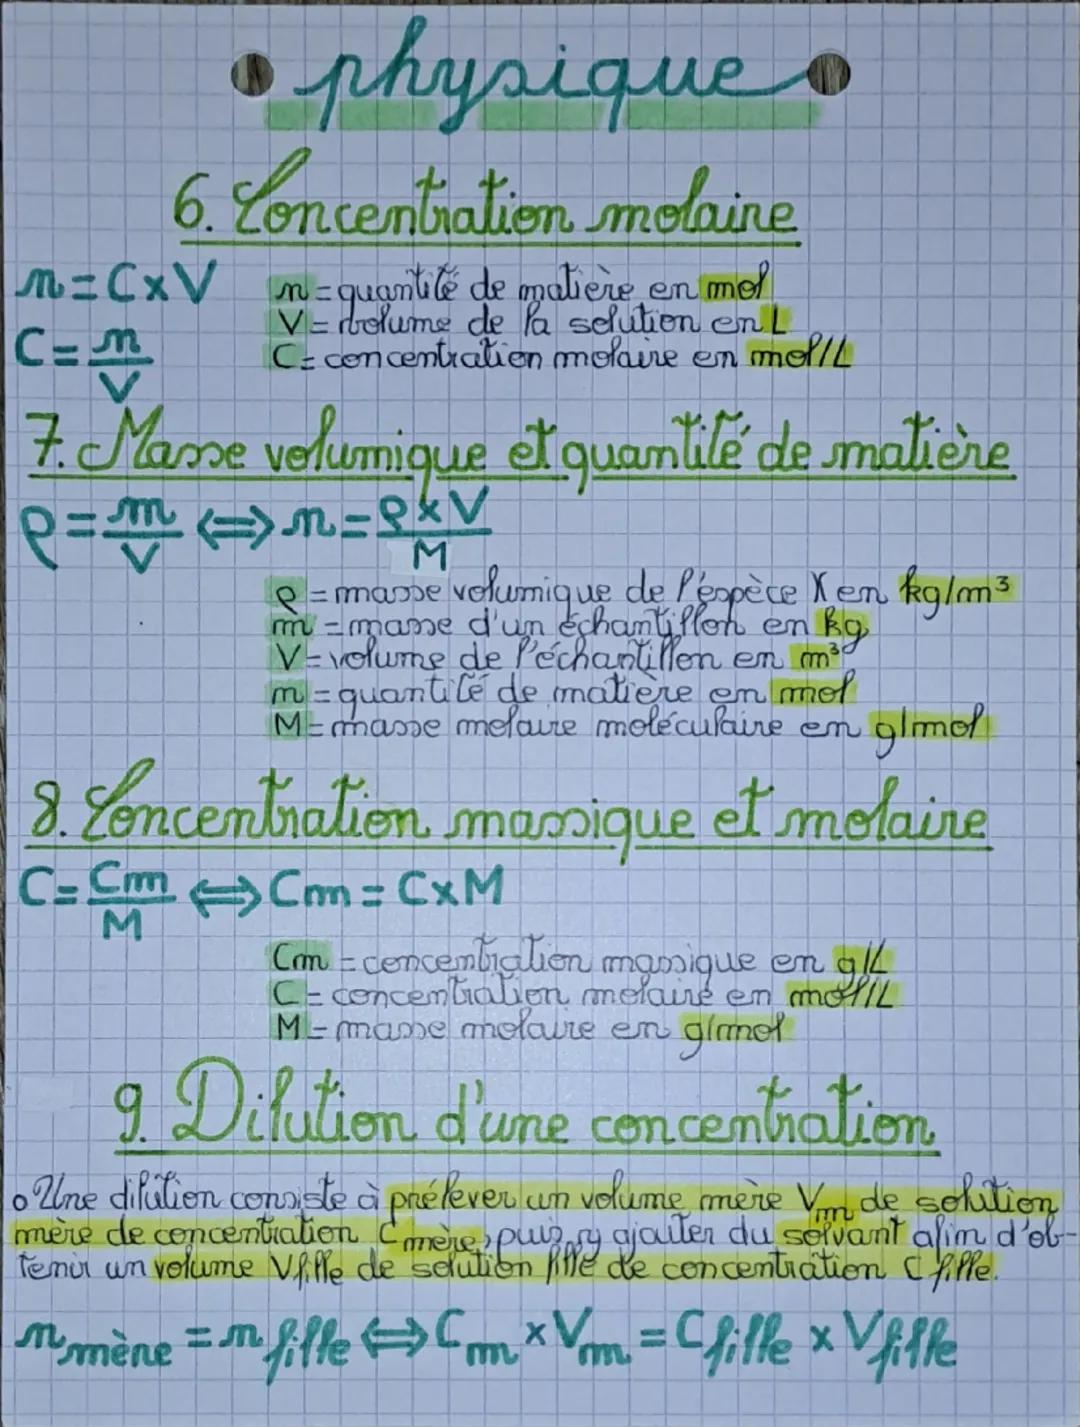 physique
6. Concentration molaire
n = C x V
n = quantité de matière en mol
V = volume de la solution en L
C = n/V
C = concentration molaire en mol/L
7. Masse volumique et quantité de matière
ρ = m/V ⟺ n = ρ x V / M
ρ = masse volumique de l'éspèce X en kg/m³
m = masse d'un échantillon en kg
V = volume de l'échantillon en m³
n = quantité de matière en mol
M = masse molaire moléculaire en g/mol
8. Concentration massique et molaire
C = Cm/M ⟺ Cm = C x M
Cm = concentration massique en g/L
C = concentration molaire en mol/L
M = masse molaire en g/mol
9. Dilution d'une concentration
o Une dilution consiste à prélever un volume mère Vm de solution
mère de concentration C mère, puis y ajouter du solvant afin d'ob-
tenir un volume Vfille de solution fille de concentration C fille.
n mère = n fille ⟺ Cm x Vm = C fille x V fille